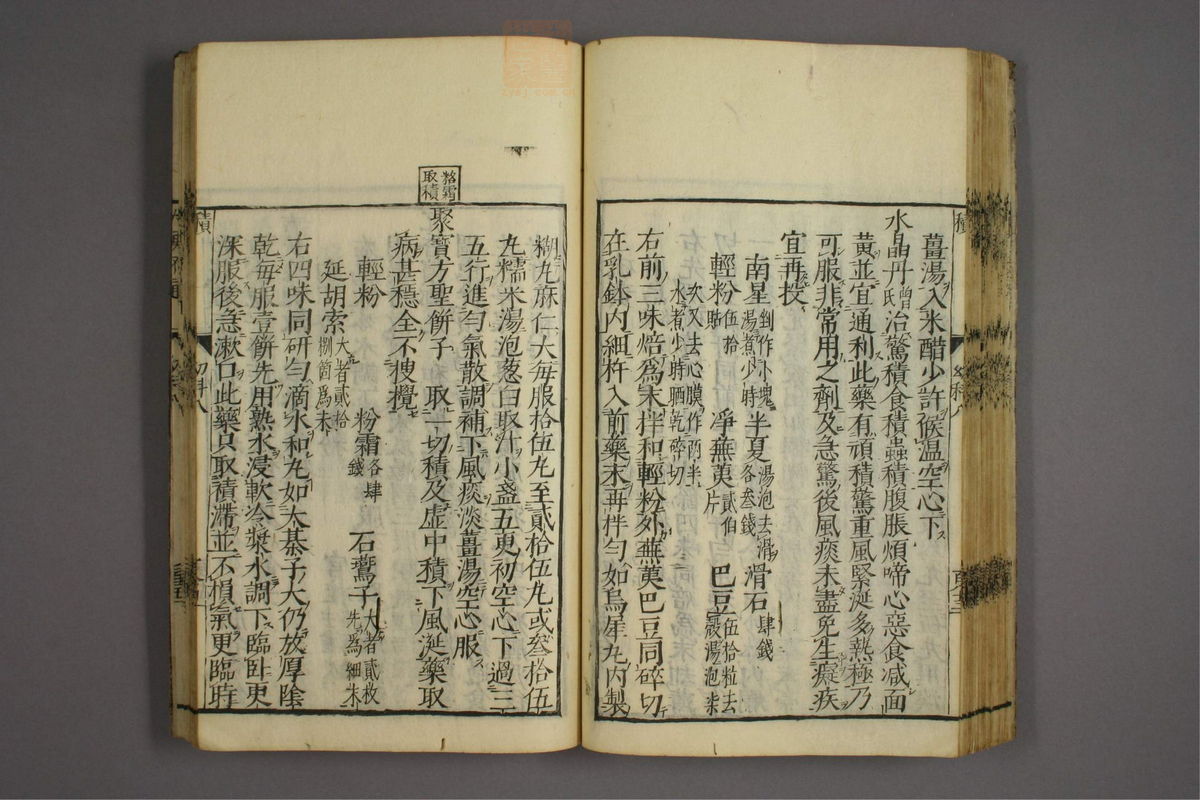 薑湯入米醋少許候温空心下
水晶丹曽氏治驚積食積蟲積腹脹煩啼心惡食减面
黄並宜通利此藥有頑積驚重風緊涎多熱極乃
可服非常用之劑及急驚後風痰未盡免生癡疾
宜再投
南星剉作小塊湯煮少時半夏湯泡去滑各叁錢滑石肆錢
輕粉伍拾貼淨蕪荑貳伯片巴豆伍拾粒去殻湯泡柒
次又去心膜作兩半水煮少時晒乾碎切
右前三味焙爲末拌和輕粉外蕪荑巴豆同碎切
在乳鉢内細杵入前藥末再拌勻如烏犀丸内製
糊丸麻仁大每服拾伍丸至貳拾伍丸或叁拾伍
丸糯米湯泡葱白取汁小盞五更初空心下過三
五行進勻氣散調補下風痰淡薑湯空心服
粉霜取積
聚寳方聖餠子取一切積及虚中積下風涎藥取
病甚穩全不搜攪
輕粉 粉霜各肆錢 石鷰子大者貳枚先爲細末
延胡索大者貳拾捌箇爲末
右四味同研勻滴水和丸如大棊子大仍放厚陰
乾每服壹餠先用熟水浸軟冷漿水調下臨卧更
深服後急漱口此藥只取積滯並不損氣更臨時